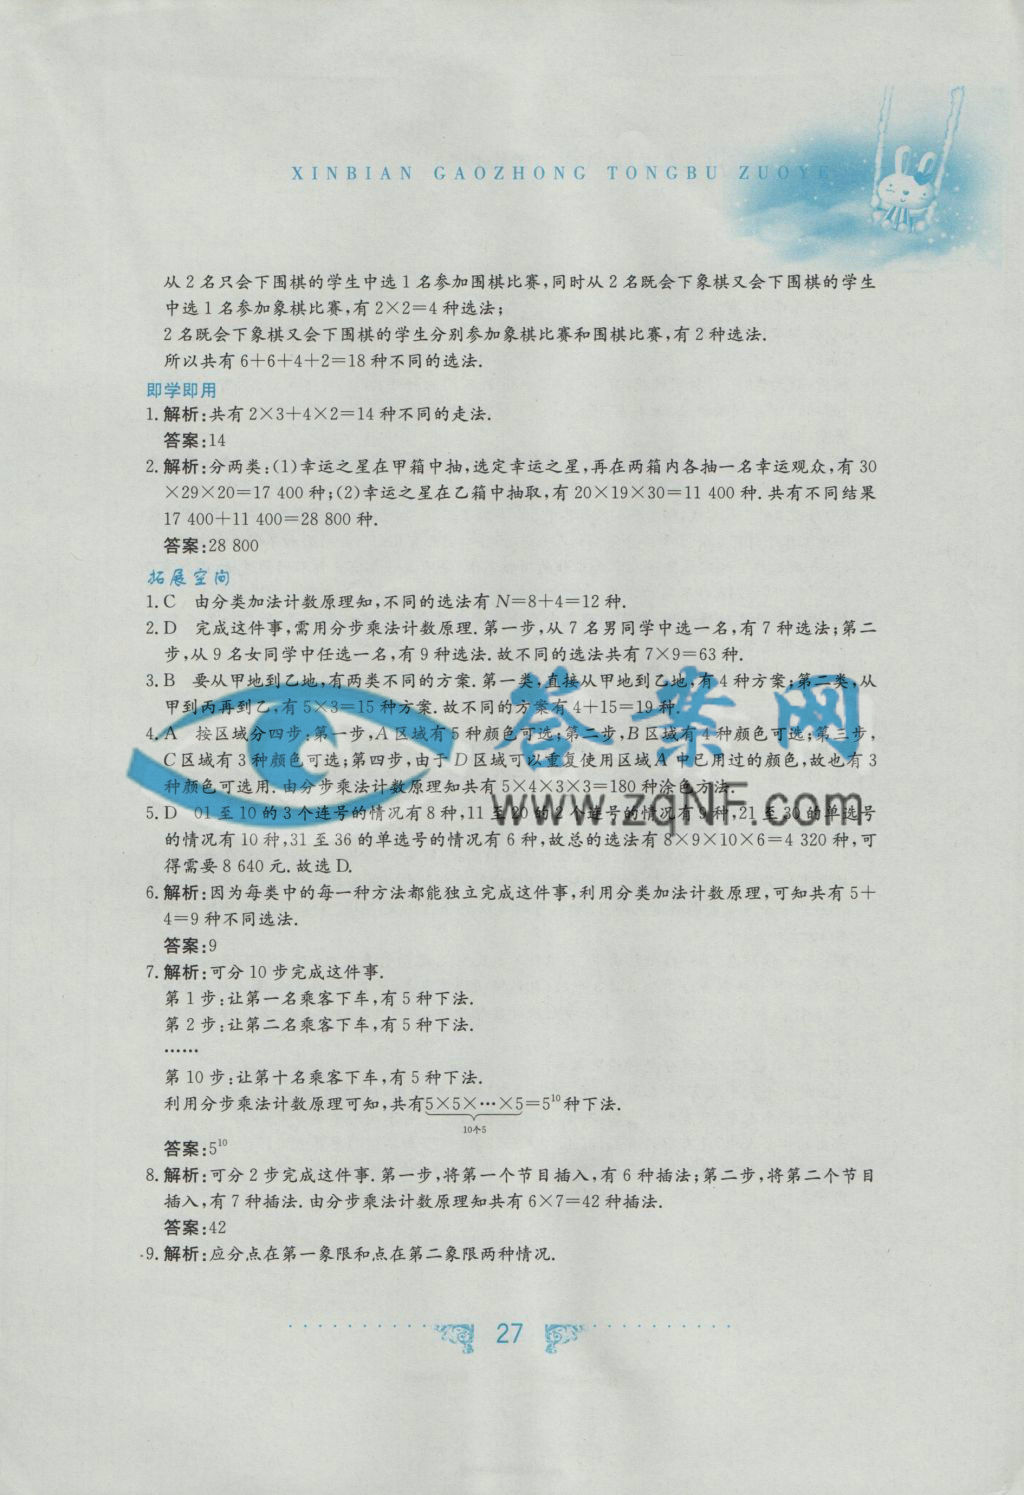 XINBIAN GAOZHONG TONGBU ZUOYE
从2名只会下围棋的学生中选1名参加围棋比赛,同时从2名既会下象棋又会下围棋的学生
中选1名参加象棋比赛,有2×2=4种选法;
2名既会下象棋又会下围棋的学生分别参加象棋比赛和围棋比赛,有2种选法.
所以共有6+6+4+2=18种不同的选法.
即学即用
1.解析:共有2×3+4×2=14种不同的走法.
答案:14
2.解析:分两类:(1)幸运之星在甲箱中抽,选定幸运之星,再在两箱内各抽一名幸运观众,有30
×29×20=17 400种;(2)幸运之星在乙箱中抽取,有20×19×30=11 400种.共有不同结果
17 400+11 400=28 800种.
答案:28 800
拓展空间
1.C 由分类加法计数原理知,不同的选法有N=8+4=12种.
2.D 完成这件事,需用分步乘法计数原理.第一步,从7名男同学中选一名,有7种选法;第二
步,从9名女同学中任选一名,有9种选法.故不同的选法共有7×9=63种.
3.B 要从甲地到乙地,有两类不同的方案.第一类,直接从甲地到乙地,有4种方案;第二类,从
甲到丙再到乙,有5×3=15种方案.故不同的方案有4+15=19种.
4.A 按区域分四步:第一步,A区域有5种颜色可选;第二步,B区域有4种颜色可选;第三步,
C区域有3种颜色可选;第四步,由于D区域可以重复使用区域A中已用过的颜色,故也有3
种颜色可选用.由分步乘法计数原理知共有5×4×3×3=180种涂色方法.
5.D 01至10的3个连号的情况有8种,11至20的2个连号的情况有9种,21至30的单选号
的情况有10种,31至36的单选号的情况有6种,故总的选法有8×9×10×6=4 320种,可
得需要8 640元.故选D.
6.解析:因为每类中的每一种方法都能独立完成这件事,利用分类加法计数原理,可知共有5+
4=9种不同选法.
答案:9
7.解析:可分10步完成这件事.
第1步:让第一名乘客下车,有5种下法.
第2步:让第二名乘客下车,有5种下法.
……
第10步:让第十名乘客下车,有5种下法.
利用分步乘法计数原理可知,共有5×5×…×5=5¹⁰种下法.
10个5
答案:5¹⁰
8.解析:可分2步完成这件事.第一步,将第一个节目插入,有6种插法;第二步,将第二个节目
插入,有7种插法.由分步乘法计数原理知共有6×7=42种插法.
答案:42
9.解析:应分点在第一象限和点在第二象限两种情况.
27
答案网
www.zqNF.com